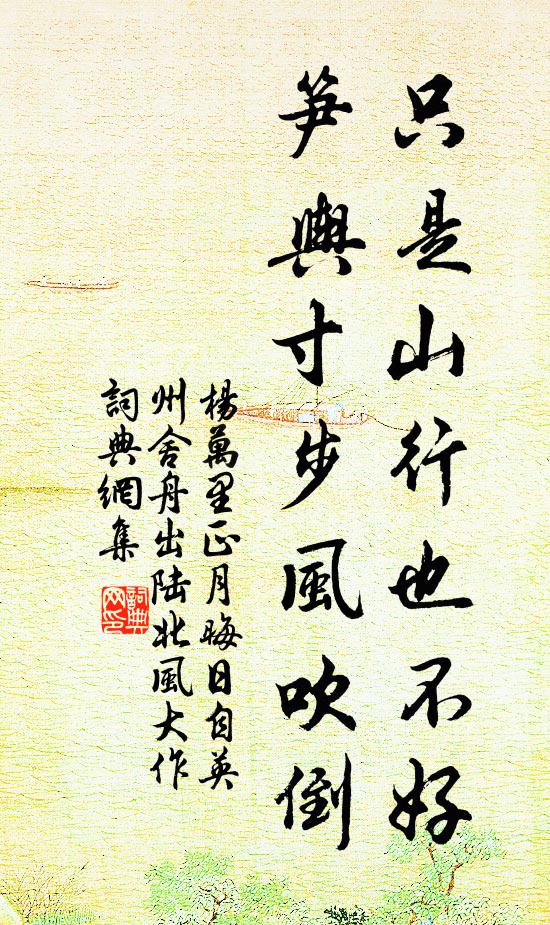 只是山行也不好
笋輿寸步風吹倒
楊萬里正月晦日自英
州舍舟出陆北風大作
詞典網集
詞典
网印